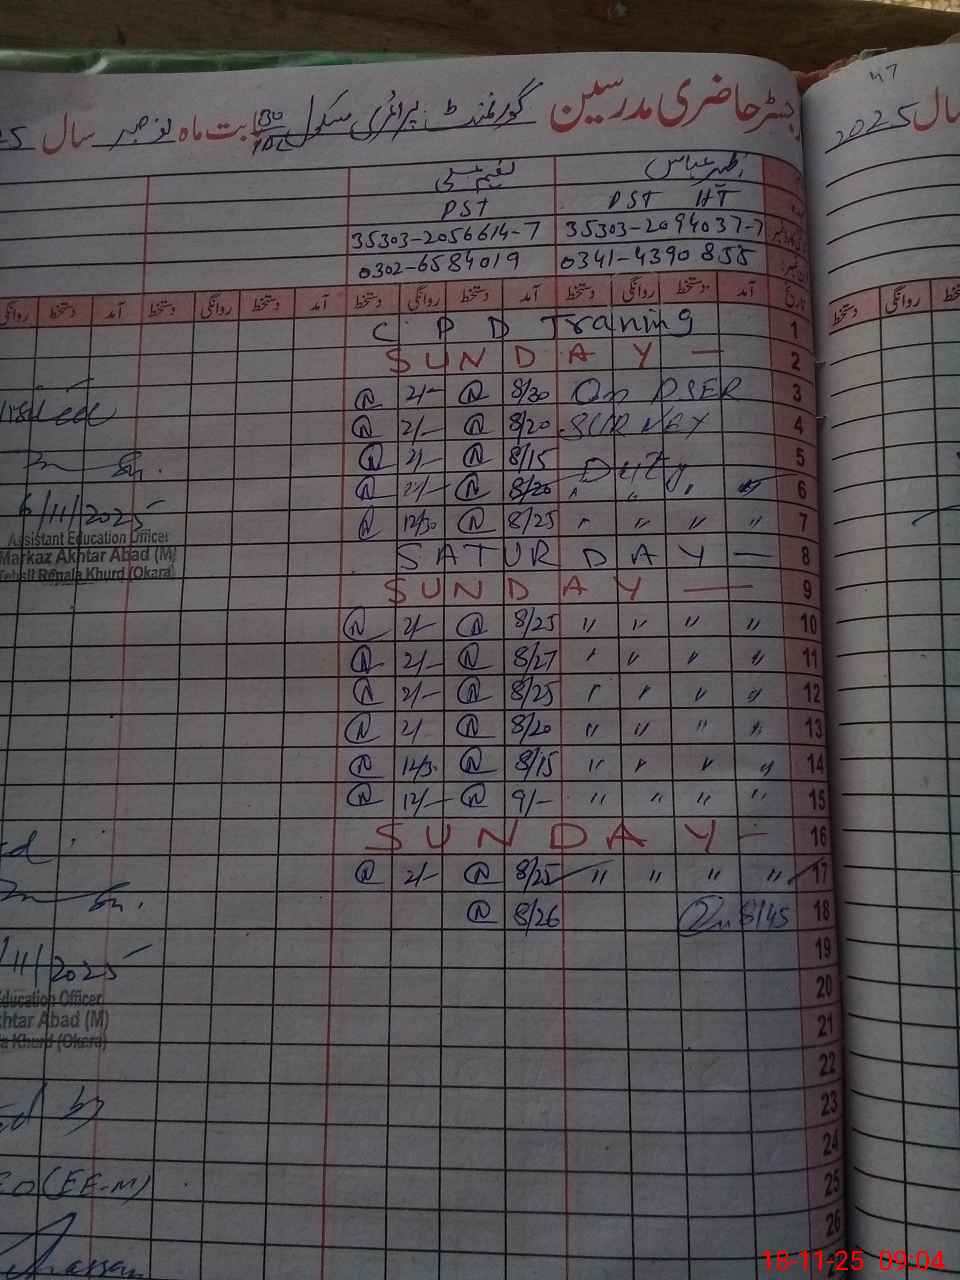 رجسٹر حاضری مدرسین گورنمنٹ پرائمری سکول بابت ماہ نومبر سال
47
سال 2025
اظہر عباس
PST HT
PST
35303-2094037-7 35303-2056614-7
0341-4390855 0302-6584019
تاریخ آمد دستخط روانگی دستخط آمد دستخط روانگی دستخط آمد دستخط روانگی دستخط آمد دستخط روانگی
روانگی دستخط
1 C P D Traning
2 SUNDAY —
3 On PSER 8/30 N 2/- N
4 SURVEY 8/20 N 2/- N
5 Duty 8/15 N 2/- N
6 " " " 8/20 N 2/- N
7 " " " " 8/25 N 12/30 N
8 SATURDAY —
9 SUNDAY —
10 " " " " 8/25 N 2/- N
11 " " " " 8/27 N 2/- N
12 " " " " 8/25 N 2/- N
13 " " " " 8/20 N 2/- N
14 " " " " 8/15 N 12/3 N
15 " " " " 9/- N 12/- N
16 SUNDAY -
17 " " " " 8/25 N 2/- N
18 8/45 8/26 N
19
20
21
22
23
24
25
26
6/11/2025
Assistant Education Officer
Markaz Akhtar Abad (M)
Tehsil Renala Khurd (Okara)
/11/2025
Education Officer
khtar Abad (M)
a Khurd (Okara)
by
EO (EE-M)
18-11-25 09:04